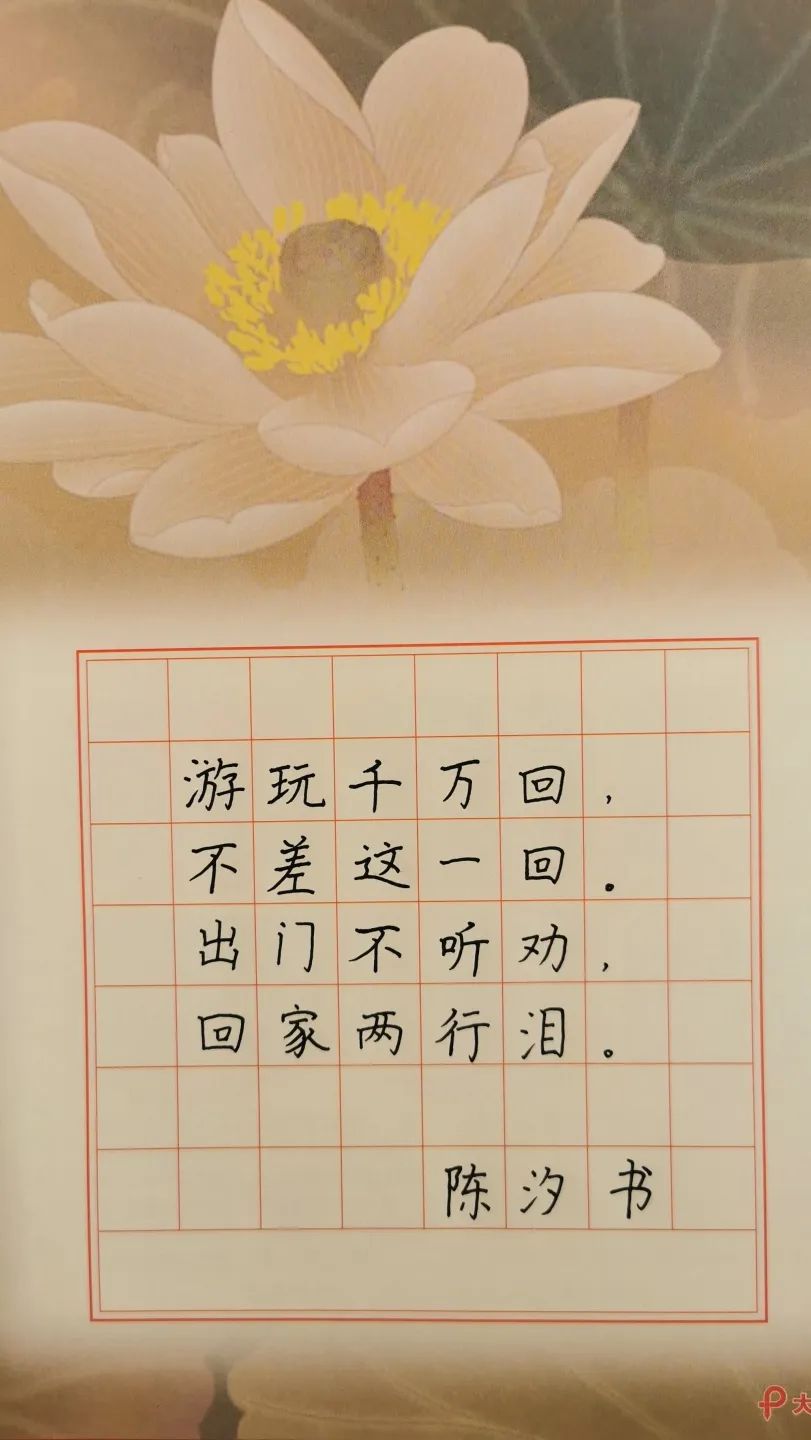 游玩千万回，
不差这一回。
出门不听劝，
回家两行泪。
陈汐书
大